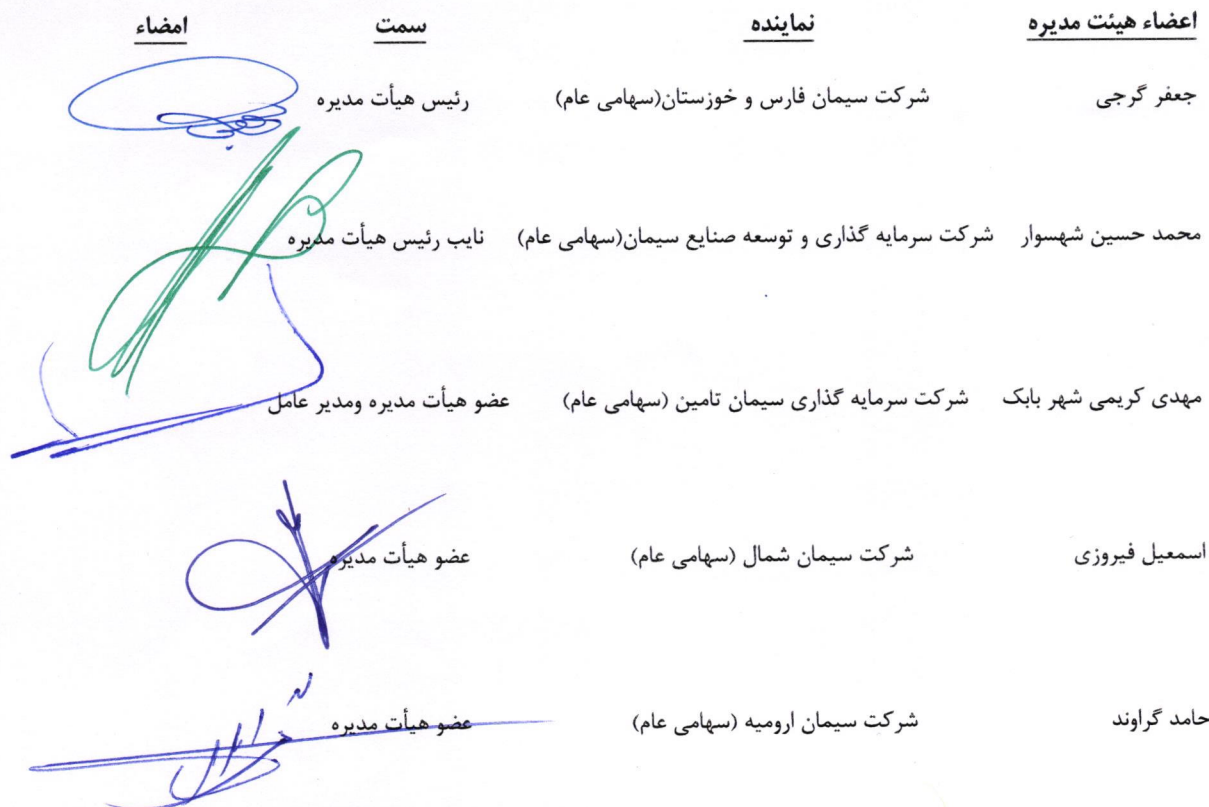 اعضاء هیئت مدیره نماینده سمت امضاء
جعفر گرجی شرکت سیمان فارس و خوزستان(سهامی عام) رئیس هیأت مدیره
محمد حسین شهسوار شرکت سرمایه گذاری و توسعه صنایع سیمان(سهامی عام) نایب رئیس هیأت مدیره
مهدی کریمی شهر بابک شرکت سرمایه گذاری سیمان تامین (سهامی عام) عضو هیأت مدیره ومدیر عامل
اسمعیل فیروزی شرکت سیمان شمال (سهامی عام) عضو هیأت مدیره
حامد گراوند شرکت سیمان ارومیه (سهامی عام) عضو هیأت مدیره